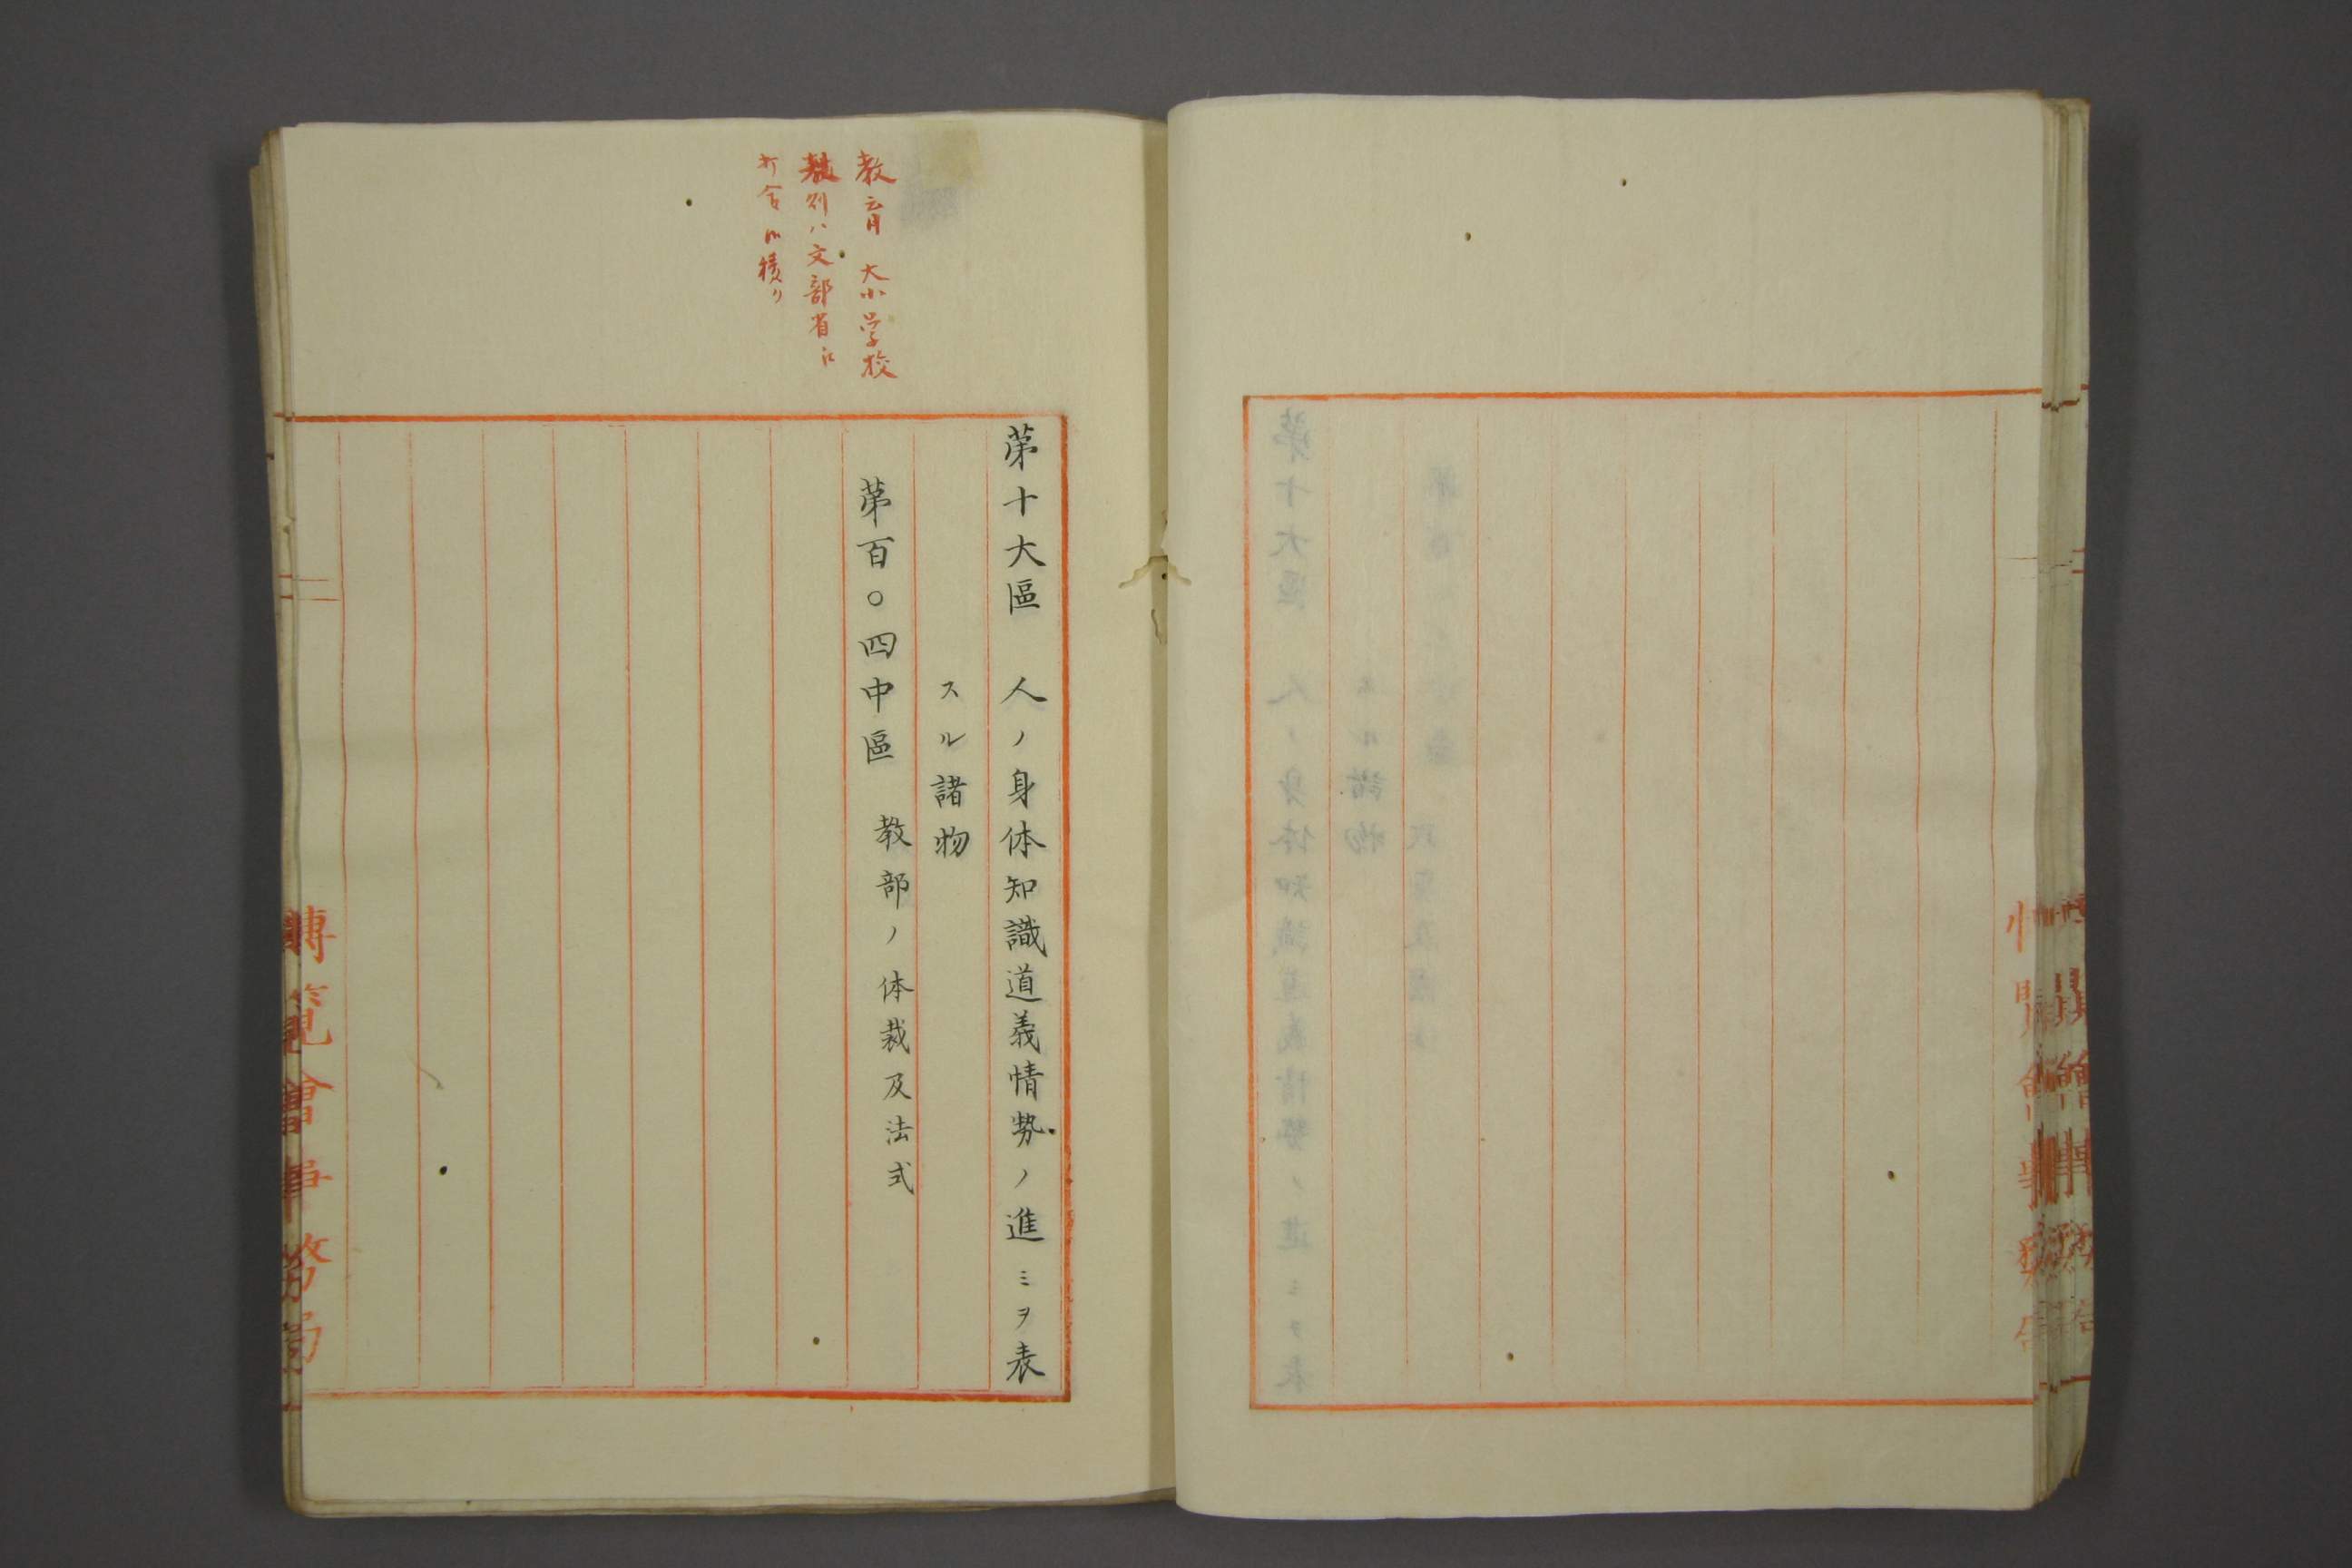 教育 大小学校
規則ハ文部省江
打合ノ積リ
第十大區 人ノ身体知識道義情勢ノ進ミヲ表
スル諸物
第百〇四中區 教部ノ体裁及法式
博覧會事務局